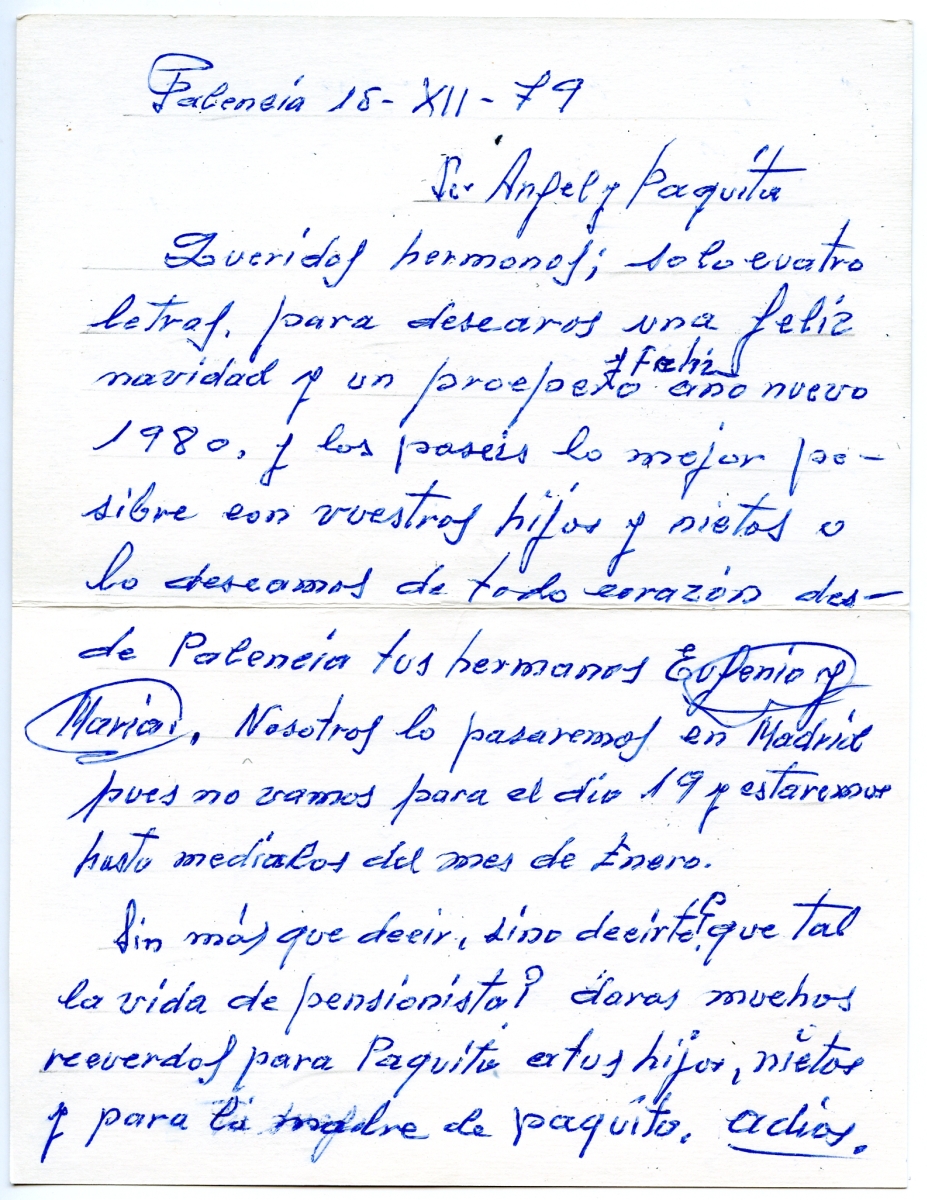 Palencia 15-XII-79
Sr Angel y Paquita
Queridos hermanos; solo cuatro
letras, para desearos una feliz
navidad y un proepero y Feliz año nuevo
1980, y los paseis lo mejor po-
sibre con vuestros hijos y nietos o
lo deseamos de todo corazón des-
de Palencia tus hermanos Eugenio y
Maria. Nosotros lo pasaremos en Madrid
pues no vamos para el dia 19 y estaremos
hasta mediados del mes de Enero.
Sin más que decir, sino decirte ¿que tal
la vida de pensionista? daras muchos
recuerdos para Paquita a tus hijos, nietos
y para la madre de paquita. adios.